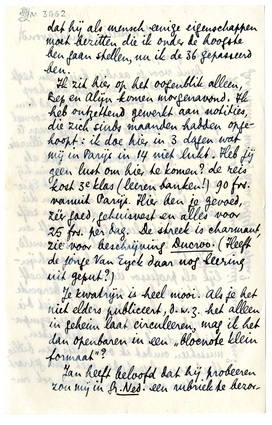 3062
dat hij als mensch eenige eigenschappen
moet bezitten die ik onder de hoogste
ben gaan stellen, nu ik de 36 gepasseerd
ben.
Ik zit hier op het oogenblik alleen,
Bep en Alijn komen morgenavond. Ik
heb ontzettend gewerkt aan notities,
die zich sinds maanden hadden opge-
hoopt: ik doe hier in 3 dagen wat
mij in Parijs in 14 niet lukt. Heb jij
geen lust om hier te komen? de reis
kost 3e klas (leeren banken!) 90 frs.
vanuit Parijs. Hier ben je gevoed,
zéér goed, gehuisvest en alles voor
25 frs. per dag. De streek is charmant,
zie voor beschrijving Ducroo. (Heeft
de jonge Van Eyck daar nog leering
uit geput?)
Je kwatrijn is heel mooi. Als je het
niet elders publiceert, d.w.z. het alleen
in geheim laat circuleeren, mag ik het
dan openbaren in een "blocnote klein
formaat"?
Jan heeft beloofd dat hij probeeren
zou mij in Gr. Ned. een rubriek te bezor-